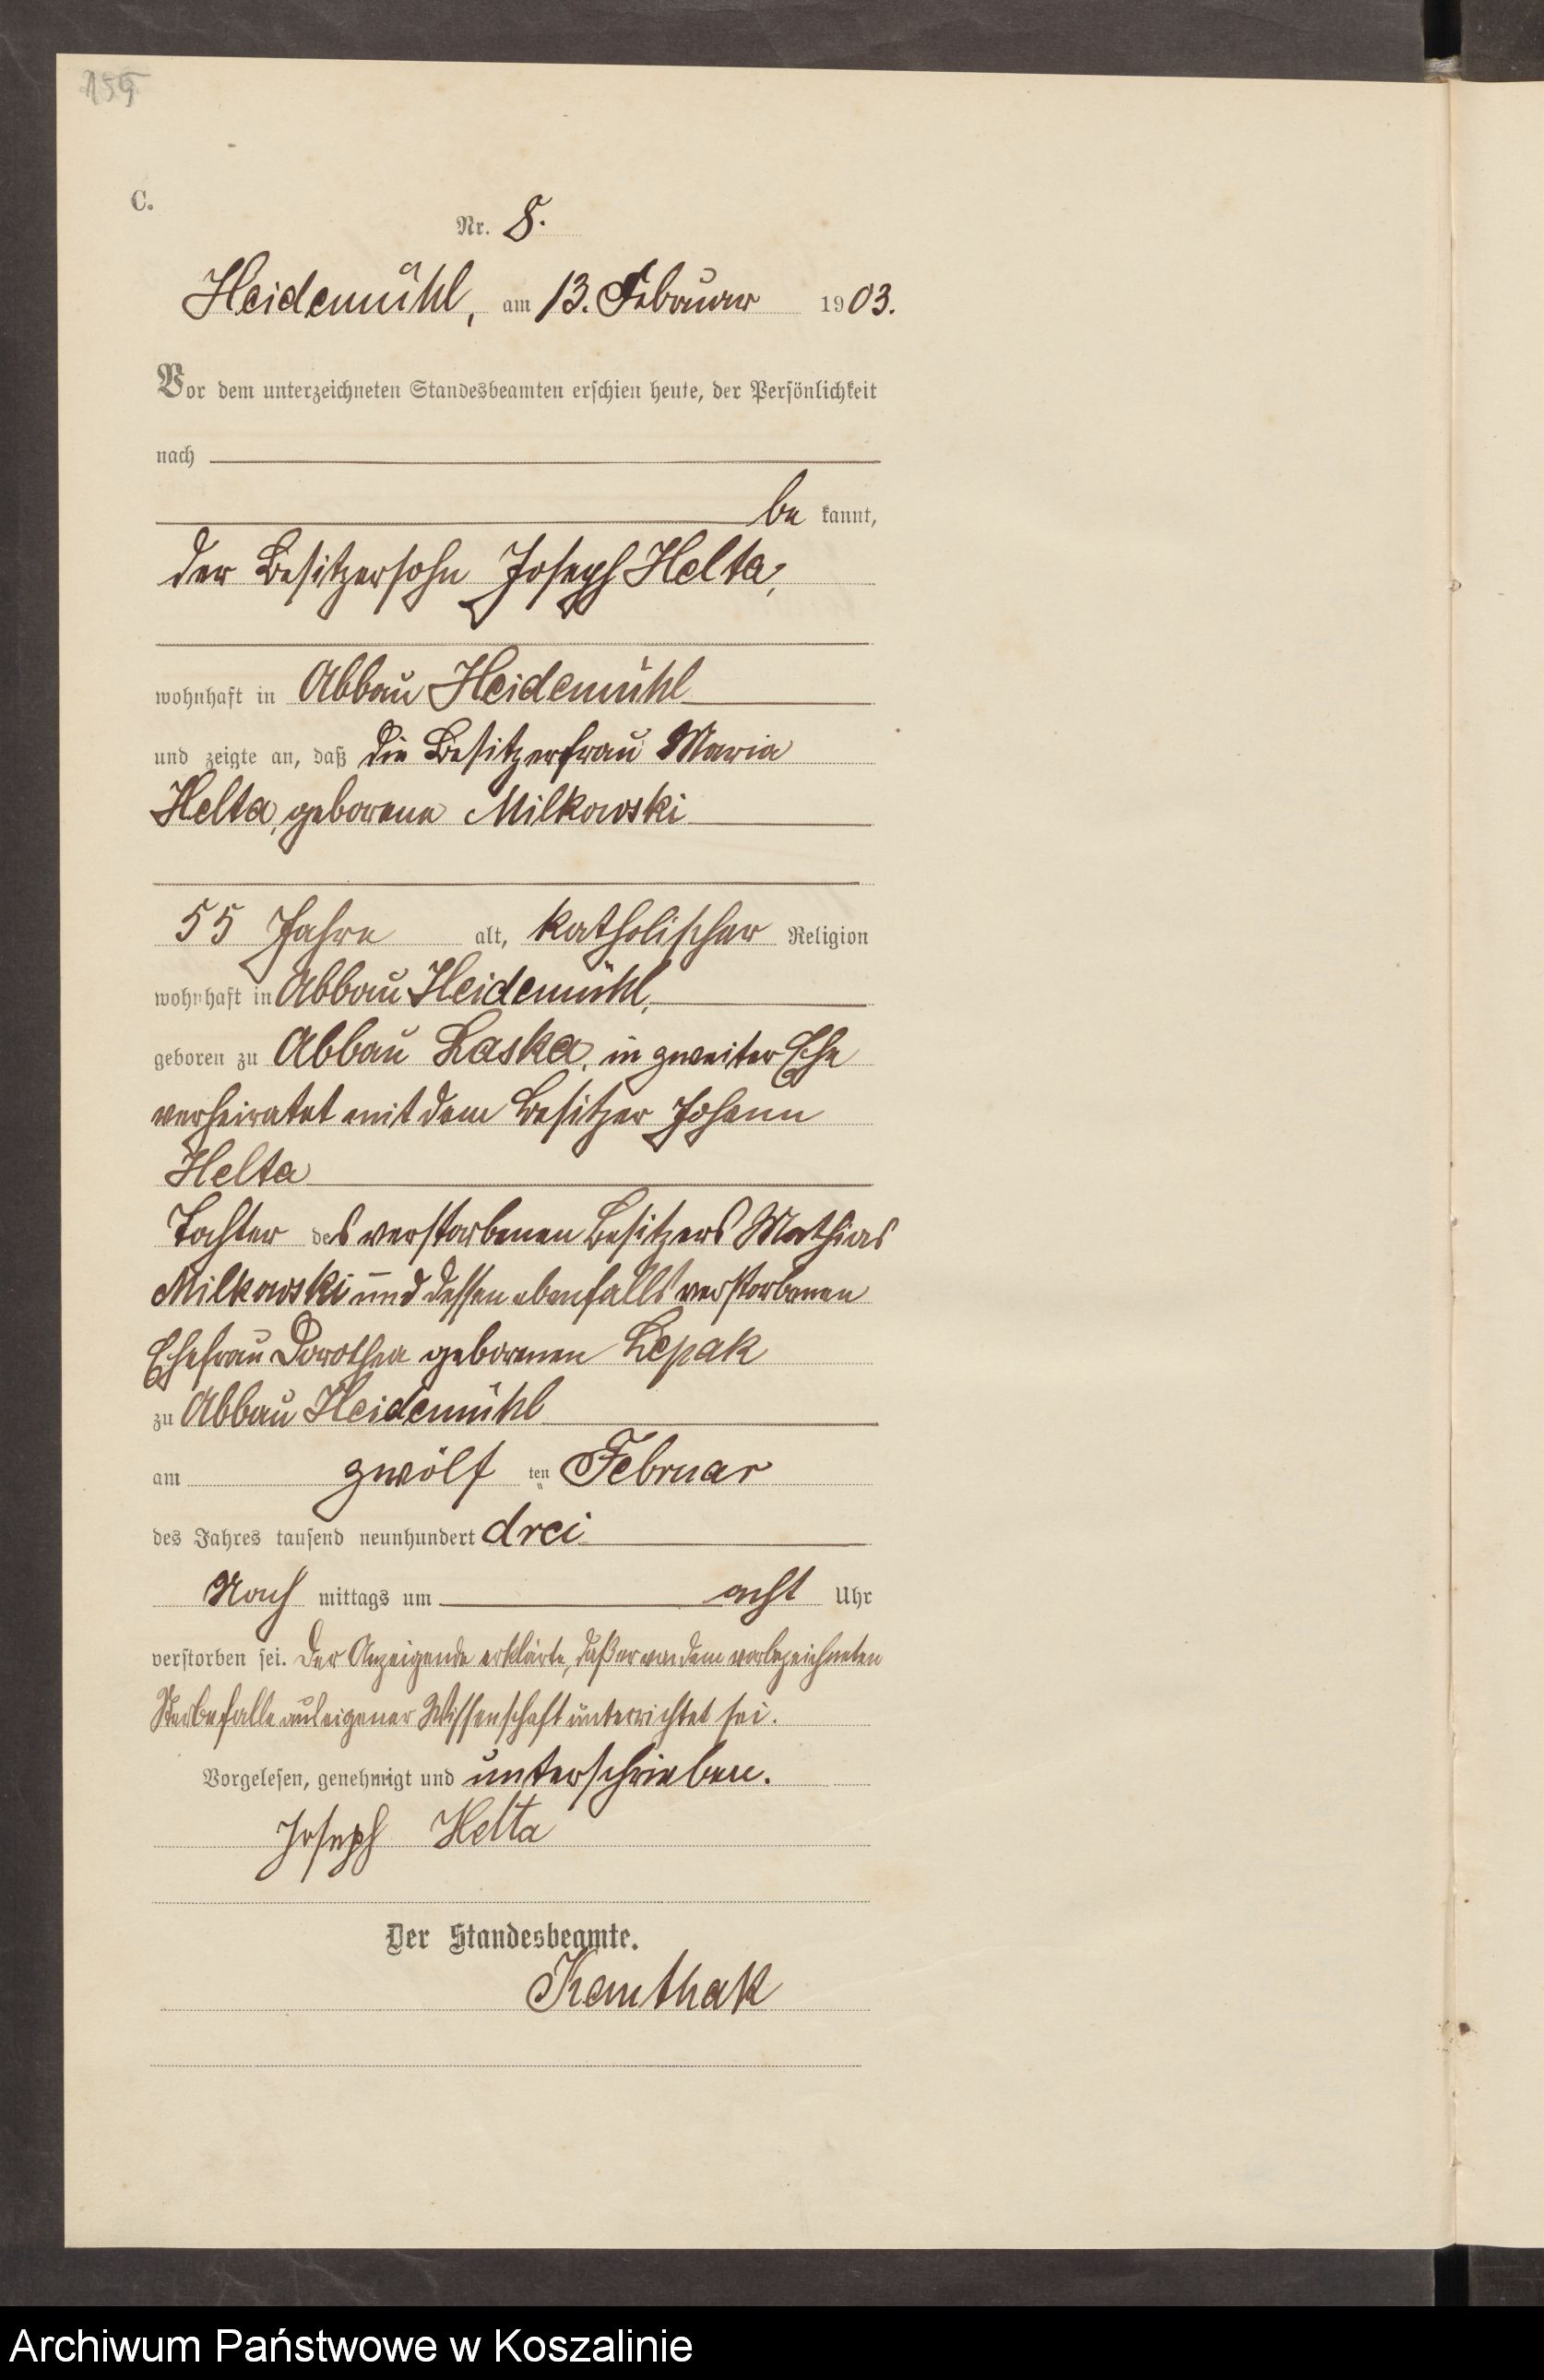 159
C.
Nr. 8.
Heidemühl, am 13. Februar 1903.
Vor dem unterzeichneten Standesbeamten erschien heute, der Persönlichkeit
nach
be kannt,
der Besitzersohn Joseph Helta,
wohnhaft in Abbau Heidemühl
und zeigte an, daß die Besitzerfrau Maria
Helta, geborene Milkowski
55 Jahre alt, katholischer Religion
wohnhaft in Abbau Heidemühl,
geboren zu Abbau Laska, in zweiter Ehe
verheiratet mit dem Besitzer Johann
Helta
Tochter des verstorbenen Besitzers Mathias
Milkowski und dessen ebenfalls verstorbenen
Ehefrau Dorothea geborenen Lepak
zu Abbau Heidemühl
am zwölf ten Februar
des Jahres tausend neunhundert drei
Nach mittags um acht Uhr
verstorben sei. Der Anzeigende erklärte, daß er von dem vorbezeichneten
Sterbefalle aus eigener Wissenschaft unterrichtet sei.
Vorgelesen, genehmigt und unterschrieben.
Joseph Helta
Der Standesbeamte.
Kauthak
Archiwum Państwowe w Koszalinie